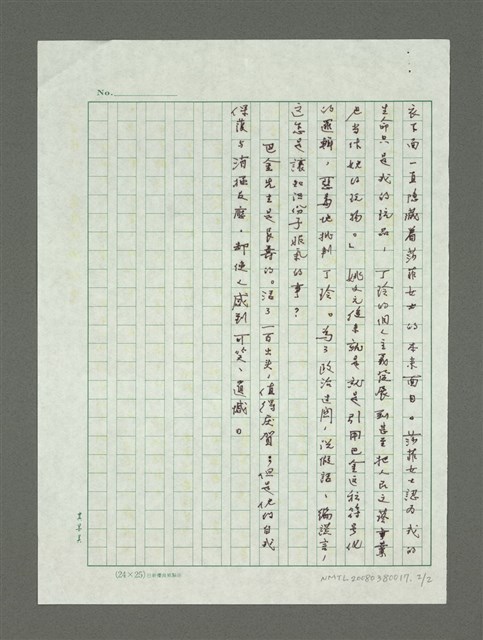 No.
衣下面一直隱藏着莎菲女士的本來面目。莎菲女士認為我的
生命只是我的玩品，丁玲的個人主義發展到甚至把人民之革事業
也當作她的玩物。」姚文元後來就是就是引用巴金這種符号化
的邏輯，惡毒地批判丁玲。為了政治過關，說假話，編謊言，
這怎是讓知識份子服氣的事？
巴金先生是長壽的。活了一百出头，值得庆賀；但是他的自我
保護与消極反應，却使人感到可笑、遺憾。
(24×25)
NMTL20080380017. 2/2